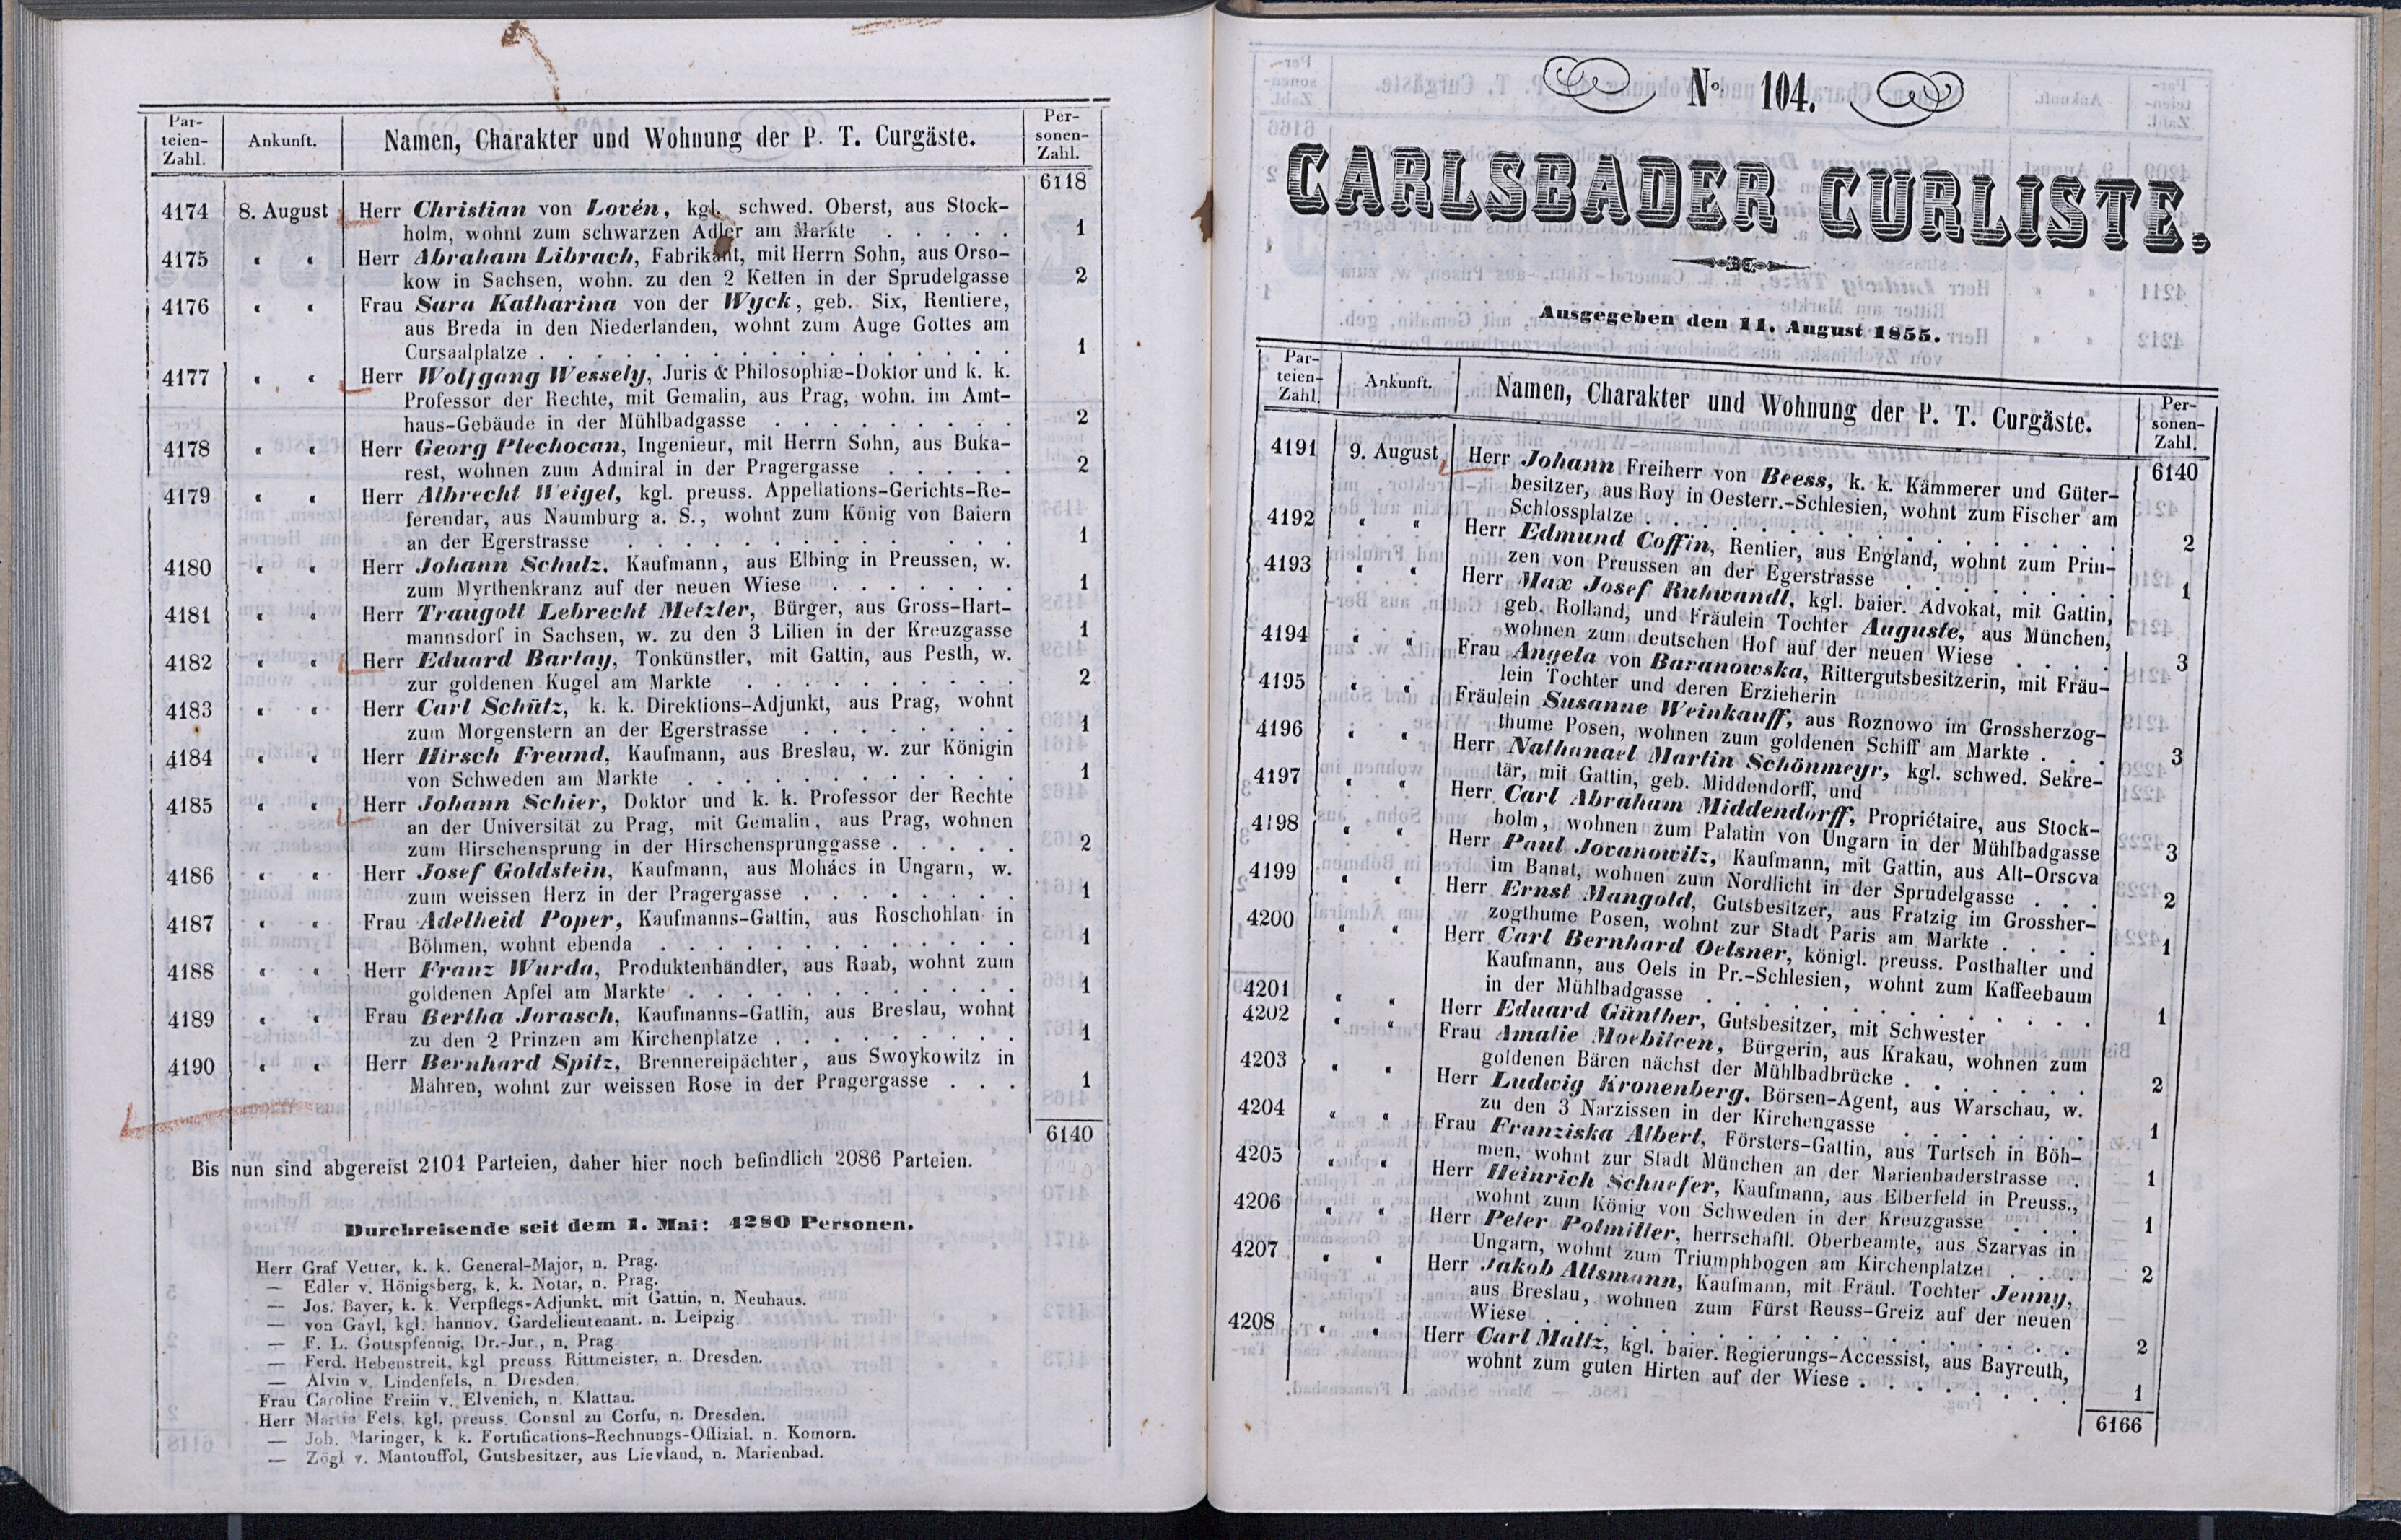 Par-
teien-
Zahl.
Ankunft.
Namen, Charakter und Wohnung der P. T. Curgäste.
Per-
sonen-
Zahl.
6118
4174 8. August Herr Christian von Lovén, kgl. schwed. Oberst, aus Stock-
holm, wohnt zum schwarzen Adler am Markte . . . . . 1
4175 " " Herr Abraham Librach, Fabrikant, mit Herrn Sohn, aus Orso-
kow in Sachsen, wohn. zu den 2 Ketten in der Sprudelgasse 2
4176 " " Frau Sara Katharina von der Wyck, geb. Six, Rentiere,
aus Breda in den Niederlanden, wohnt zum Auge Gottes am
Cursaalplatze . . . . . . . . . . . . . . . . . 1
4177 " " Herr Wolfgang Wessely, Juris & Philosophiæ-Doktor und k. k.
Professor der Rechte, mit Gemalin, aus Prag, wohn. im Amt-
haus-Gebäude in der Mühlbadgasse . . . . . . . . . 2
4178 " " Herr Georg Plechocan, Ingenieur, mit Herrn Sohn, aus Buka-
rest, wohnen zum Admiral in der Pragergasse . . . . . 2
4179 " " Herr Albrecht Weigel, kgl. preuss. Appellations-Gerichts-Re-
ferendar, aus Naumburg a. S., wohnt zum König von Baiern
an der Egerstrasse . . . . . . . . . . . . . . 1
4180 " " Herr Johann Schulz, Kaufmann, aus Elbing in Preussen, w.
zum Myrthenkranz auf der neuen Wiese . . . . . . . 1
4181 " " Herr Traugott Lebrecht Metzler, Bürger, aus Gross-Hart-
mannsdorf in Sachsen, w. zu den 3 Lilien in der Kreuzgasse 1
4182 " " Herr Eduard Bartay, Tonkünstler, mit Gattin, aus Pesth, w.
zur goldenen Kugel am Markte . . . . . . . . . . 2
4183 " " Herr Carl Schütz, k. k. Direktions-Adjunkt, aus Prag, wohnt
zum Morgenstern an der Egerstrasse . . . . . . . . 1
4184 " " Herr Hirsch Freund, Kaufmann, aus Breslau, w. zur Königin
von Schweden am Markte . . . . . . . . . . . . 1
4185 " " Herr Johann Schier, Doktor und k. k. Professor der Rechte
an der Universität zu Prag, mit Gemalin, aus Prag, wohnen
zum Hirschensprung in der Hirschensprunggasse . . . . . 2
4186 " " Herr Josef Goldstein, Kaufmann, aus Mohács in Ungarn, w.
zum weissen Herz in der Pragergasse . . . . . . . . 1
4187 " " Frau Adelheid Poper, Kaufmanns-Gattin, aus Roschohlan in
Böhmen, wohnt ebenda . . . . . . . . . . . . . 1
4188 " " Herr Franz Wurda, Produktenhändler, aus Raab, wohnt zum
goldenen Apfel am Markte . . . . . . . . . . . . 1
4189 " " Frau Bertha Jorasch, Kaufmanns-Gattin, aus Breslau, wohnt
zu den 2 Prinzen am Kirchenplatze . . . . . . . . . 1
4190 " " Herr Bernhard Spitz, Brennereipächter, aus Swoykowitz in
Mähren, wohnt zur weissen Rose in der Pragergasse . . . 1
6140
Bis nun sind abgereist 2104 Parteien, daher hier noch befindlich 2086 Parteien.
Durchreisende seit dem 1. Mai: 4280 Personen.
Herr Graf Vetter, k. k. General-Major, n. Prag.
— Edler v. Hönigsberg, k. k. Notar, n. Prag.
— Jos. Bayer, k. k. Verpflegs-Adjunkt. mit Gattin, n. Neuhaus.
— von Gayl, kgl. hannov. Gardelieutenant. n. Leipzig.
— F. L. Gottspfennig, Dr.-Jur., n. Prag.
— Ferd. Hebenstreit, kgl preuss Rittmeister, n. Dresden.
— Alvin v. Lindenfels, n. Dresden
Frau Caroline Freiin v. Elvenich, n. Klattau.
Herr Martin Fels, kgl. preuss. Consul zu Corfu, n. Dresden.
— Joh. Maringer, k. k. Fortifications-Rechnungs-Offizial. n. Komorn.
— Zögl v. Mantouffol, Gutsbesitzer, aus Lievland, n. Marienbad.
No. 104.
CARLSBADER CURLISTE.
Ausgegeben den 11. August 1855.
Par-
teien-
Zahl.
Ankunft.
Namen, Charakter und Wohnung der P. T. Curgäste.
Per-
sonen-
Zahl.
6140
4191 9. August Herr Johann Freiherr von Beess, k. k. Kämmerer und Güter-
besitzer, aus Roy in Oesterr.-Schlesien, wohnt zum Fischer am
Schlossplatze . . . . . . . . . . . . . . . . 2
4192 " " Herr Edmund Coffin, Rentier, aus England, wohnt zum Prin-
zen von Preussen an der Egerstrasse . . . . . . . . 1
4193 " " Herr Max Josef Ruhwandl, kgl. baier. Advokat, mit Gattin,
geb. Rolland, und Fräulein Tochter Auguste, aus München,
wohnen zum deutschen Hof auf der neuen Wiese . . . . 3
4194 " " Frau Angela von Baranowska, Rittergutsbesitzerin, mit Fräu-
lein Tochter und deren Erzieherin
4195 " " Fräulein Susanne Weinkauff, aus Roznowo im Grossherzog-
thume Posen, wohnen zum goldenen Schiff am Markte . . . 3
4196 " " Herr Nathanael Martin Schönmeyr, kgl. schwed. Sekre-
tär, mit Gattin, geb. Middendorff, und
4197 " " Herr Carl Abraham Middendorff, Propriétaire, aus Stock-
holm, wohnen zum Palatin von Ungarn in der Mühlbadgasse 3
4198 " " Herr Paul Jovanowitz, Kaufmann, mit Gattin, aus Alt-Orsova
im Banat, wohnen zum Nordlicht in der Sprudelgasse . . . 2
4199 " " Herr Ernst Mangold, Gutsbesitzer, aus Fratzig im Grossher-
zogthume Posen, wohnt zur Stadt Paris am Markte . . . . 1
4200 " " Herr Carl Bernhard Oelsner, königl. preuss. Posthalter und
Kaufmann, aus Oels in Pr.-Schlesien, wohnt zum Kaffeebaum
in der Mühlbadgasse . . . . . . . . . . . . . 1
4201 " " Herr Eduard Günther, Gutsbesitzer, mit Schwester
4202 " " Frau Amalie Moebilcen, Bürgerin, aus Krakau, wohnen zum
goldenen Bären nächst der Mühlbadbrücke . . . . . . . 2
4203 " " Herr Ludwig Kronenberg, Börsen-Agent, aus Warschau, w.
zu den 3 Narzissen in der Kirchengasse . . . . . . . 1
4204 " " Frau Franziska Albert, Försters-Gattin, aus Turtsch in Böh-
men, wohnt zur Stadt München an der Marienbaderstrasse . 1
4205 " " Herr Heinrich Schaefer, Kaufmann, aus Elberfeld in Preuss.,
wohnt zum König von Schweden in der Kreuzgasse . . . 1
4206 " " Herr Peter Polmiller, herrschaftl. Oberbeamte, aus Szarvas in
Ungarn, wohnt zum Triumphbogen am Kirchenplatze . . . 2
4207 " " Herr Jakob Altsmann, Kaufmann, mit Fräul. Tochter Jenny,
aus Breslau, wohnen zum Fürst Reuss-Greiz auf der neuen
Wiese . . . . . . . . . . . . . . . . . . . 2
4208 " " Herr Carl Maltz, kgl. baier. Regierungs-Accessist, aus Bayreuth,
wohnt zum guten Hirten auf der Wiese . . . . . . . 1
6166